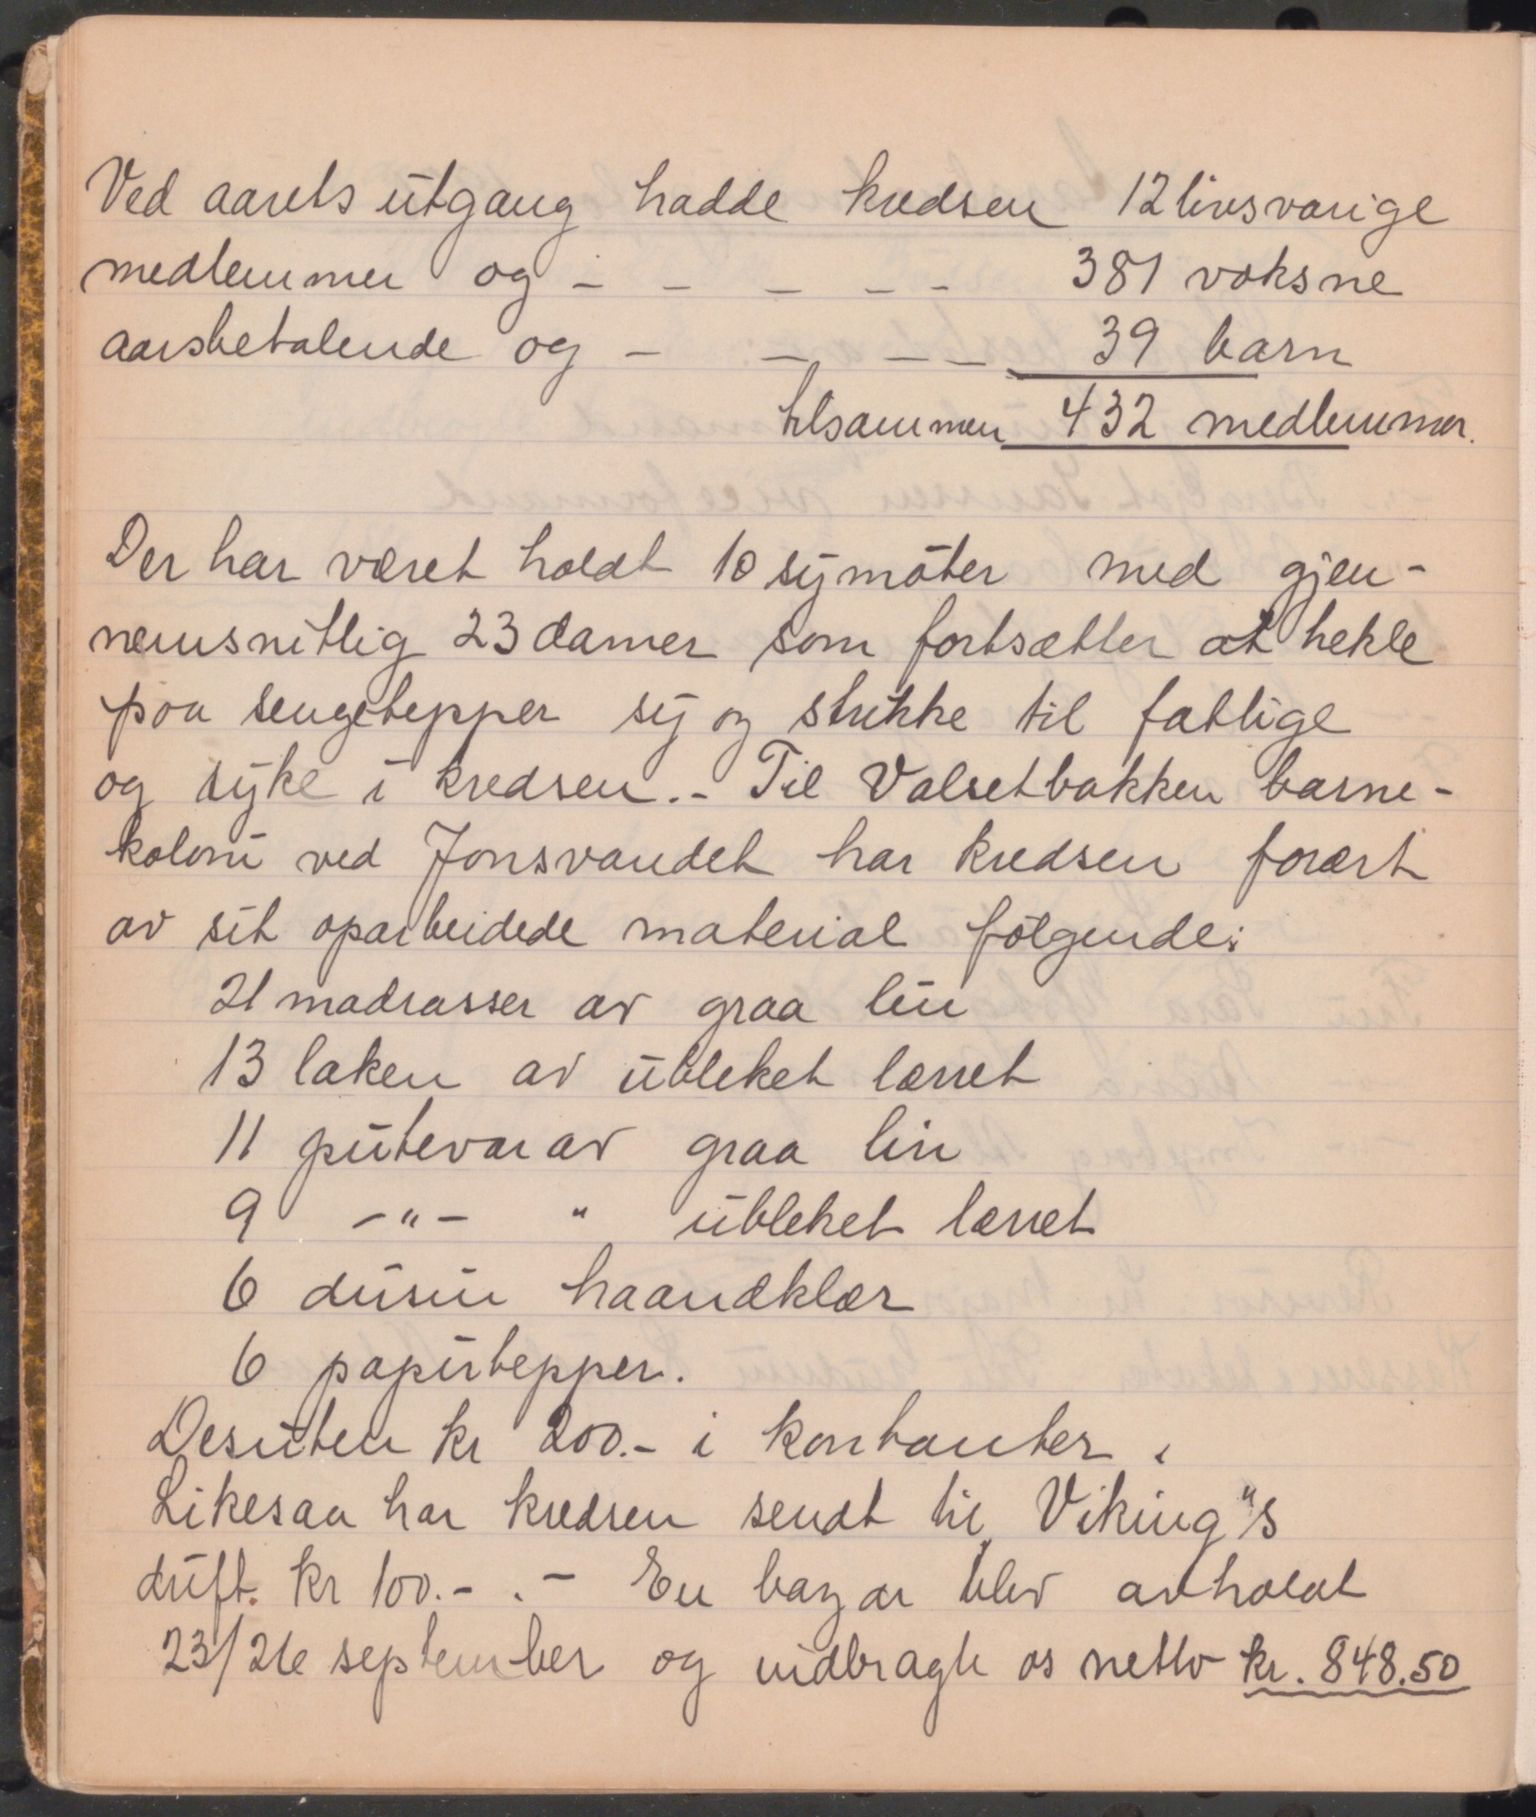 Ved aarets utgang hadde kredsen 12 livsvarige
medlemmer og - - - - - 381 voksne
aarsbetalende og - - - - 39 barn
tilsammen 432 medlemmer.
Der har været holdt 10 symøter med gjen-
nemsnitlig 23 damer som fortsætter at hekle
paa sengetepper sy og strikke til fattige
og syke i kredsen.- Til Valsetbakken barne-
koloni ved Jonsvandet har kredsen foræret
av sit oparbeidede material følgende:
21 madrasser av graa lin
13 laken av ubleket lærret
11 putevar av graa lin
9 -"- " ubleket lærret
6 dusin haandklær
6 papirtepper.
Desuten kr 200.- i kontanter.
Likesaa har kredsen sendt til Viking"s
drift. kr 100.- .- En bazar blev avholdt
23/26 september og indbragte os netto kr. 848.50